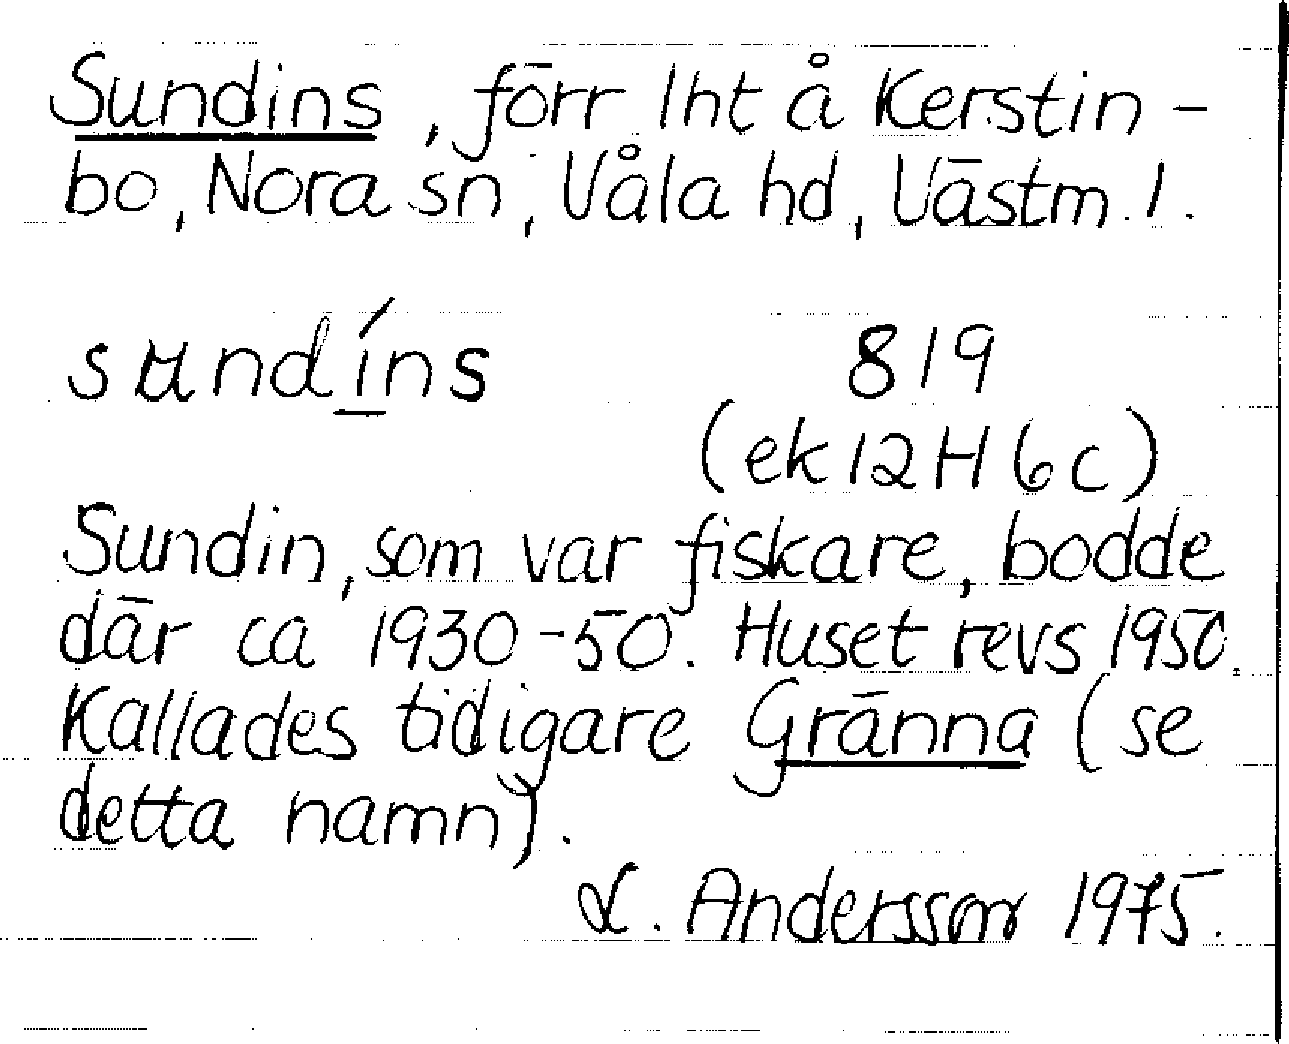 Sundins, förr lht å Kerstin-
bo, Nora sn, Våla hd, Västm. l.
sʉndíns 819
(ek 12H 6c)
Sundin, som var fiskare, bodde
där ca 1930-50. Huset revs 1950.
Kallades tidigare Gränna (se
detta namn).
L. Andersson 1975.